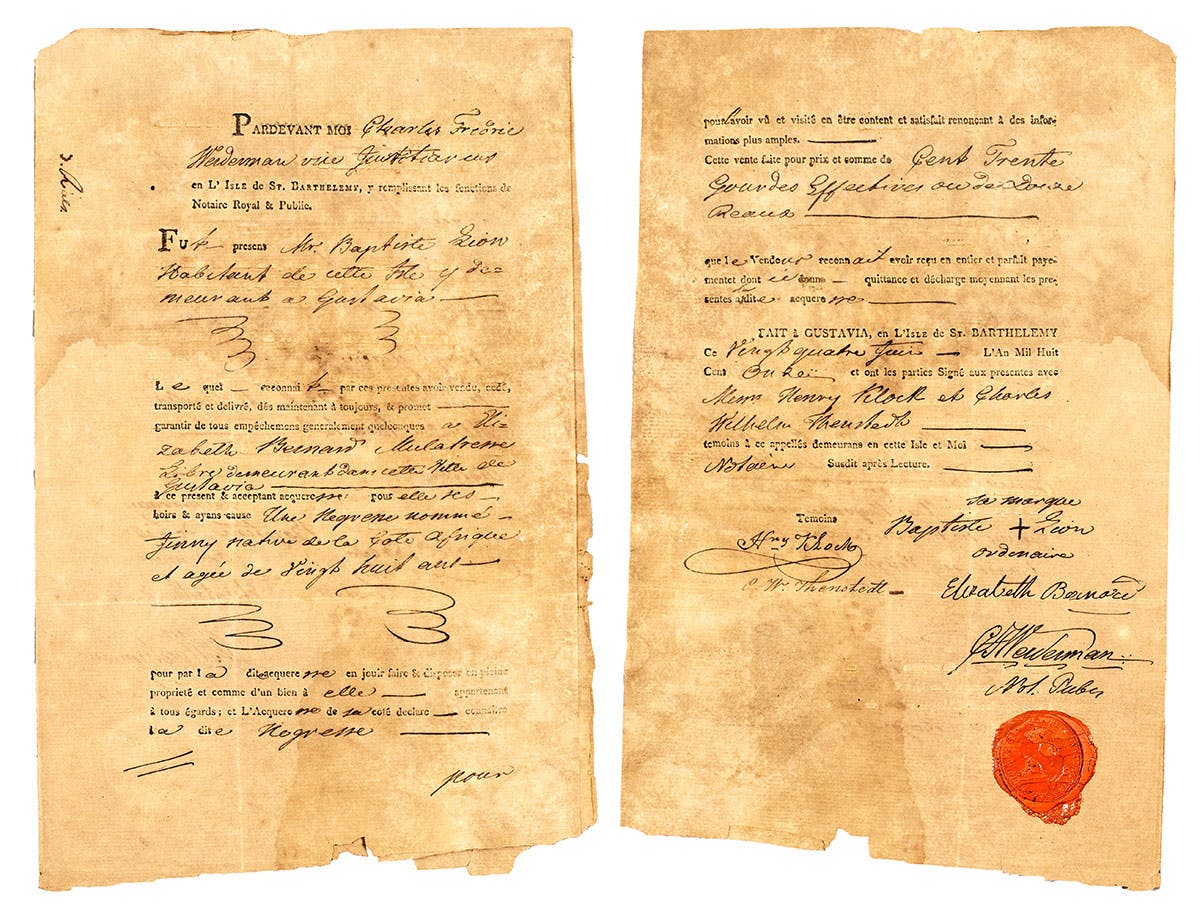 PARDEVANT MOI Charles Fredric
Weiderman vice Justitiarius
en L' ISLE de ST. BARTHELEMY, y remplissant les fonctions de
Notaire Royal & Public.
FUt present Mr. Baptiste Lion
Habitant de cette Isle y de-
meurant a Gustavia
Le quel reconnait par ces presentes avoir vendu, cedé,
transporté et delivré, dés maintenant à toujours, & promet
garantir de tous empêchemens generalement quelconques a Eli-
zabeth Bernard Mulatresse
Libre demeurant dans cette Ville de
Gustavia
à ce present & acceptant acqueresse pous elle ses
hoirs & ayans cause Une Negresse nommé
Jinny native de la Cote Afrique
et agée de Vingt huit ans
pour par la dite acqueresse en jouir faire & disposer en pleine
proprieté et comme d'un bien à elle appartenant
à tous égards; et L'Acqueresse de sa coté declare connaitre
la dite Negresse
pour
pour l'avoir vû et visité en être content et satisfait renonçant à des infor-
mations plus amples.
Cette vente faite pour prix et somme de Cent Trente
Gourdes Effectives ou de Douze
Reaux
que le Vendeur reconnait avoir reçu en entier et parfait paye-
mentet dont il donne quittance et décharge moyennant les pre-
sentes audite acqueresse
FAIT à GUSTAVIA, en L'ISLE de ST. BARTHELEMY
Ce Vingt quatre Juin L'An Mil Huit
Cent Onze et ont les parties Signé aux presentes avec
Mrs Henry Klock et Charles
Wilhelm Thenstedt
temoins à ce appellés demeurans en cette Isle et Moi
Notaire Susdit après Lecture.
Temoins
Hny Klock
C. W. Thenstedt
sa marque
Baptiste + Lion
ordinaire
Elizabeth Bernard
CFWeiderman
Not. Pub